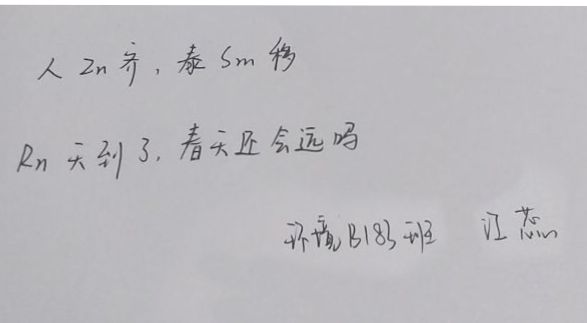 人Zn齐，泰Sm移
Rn天到了，春天还会远吗
环境B183班 江蕊